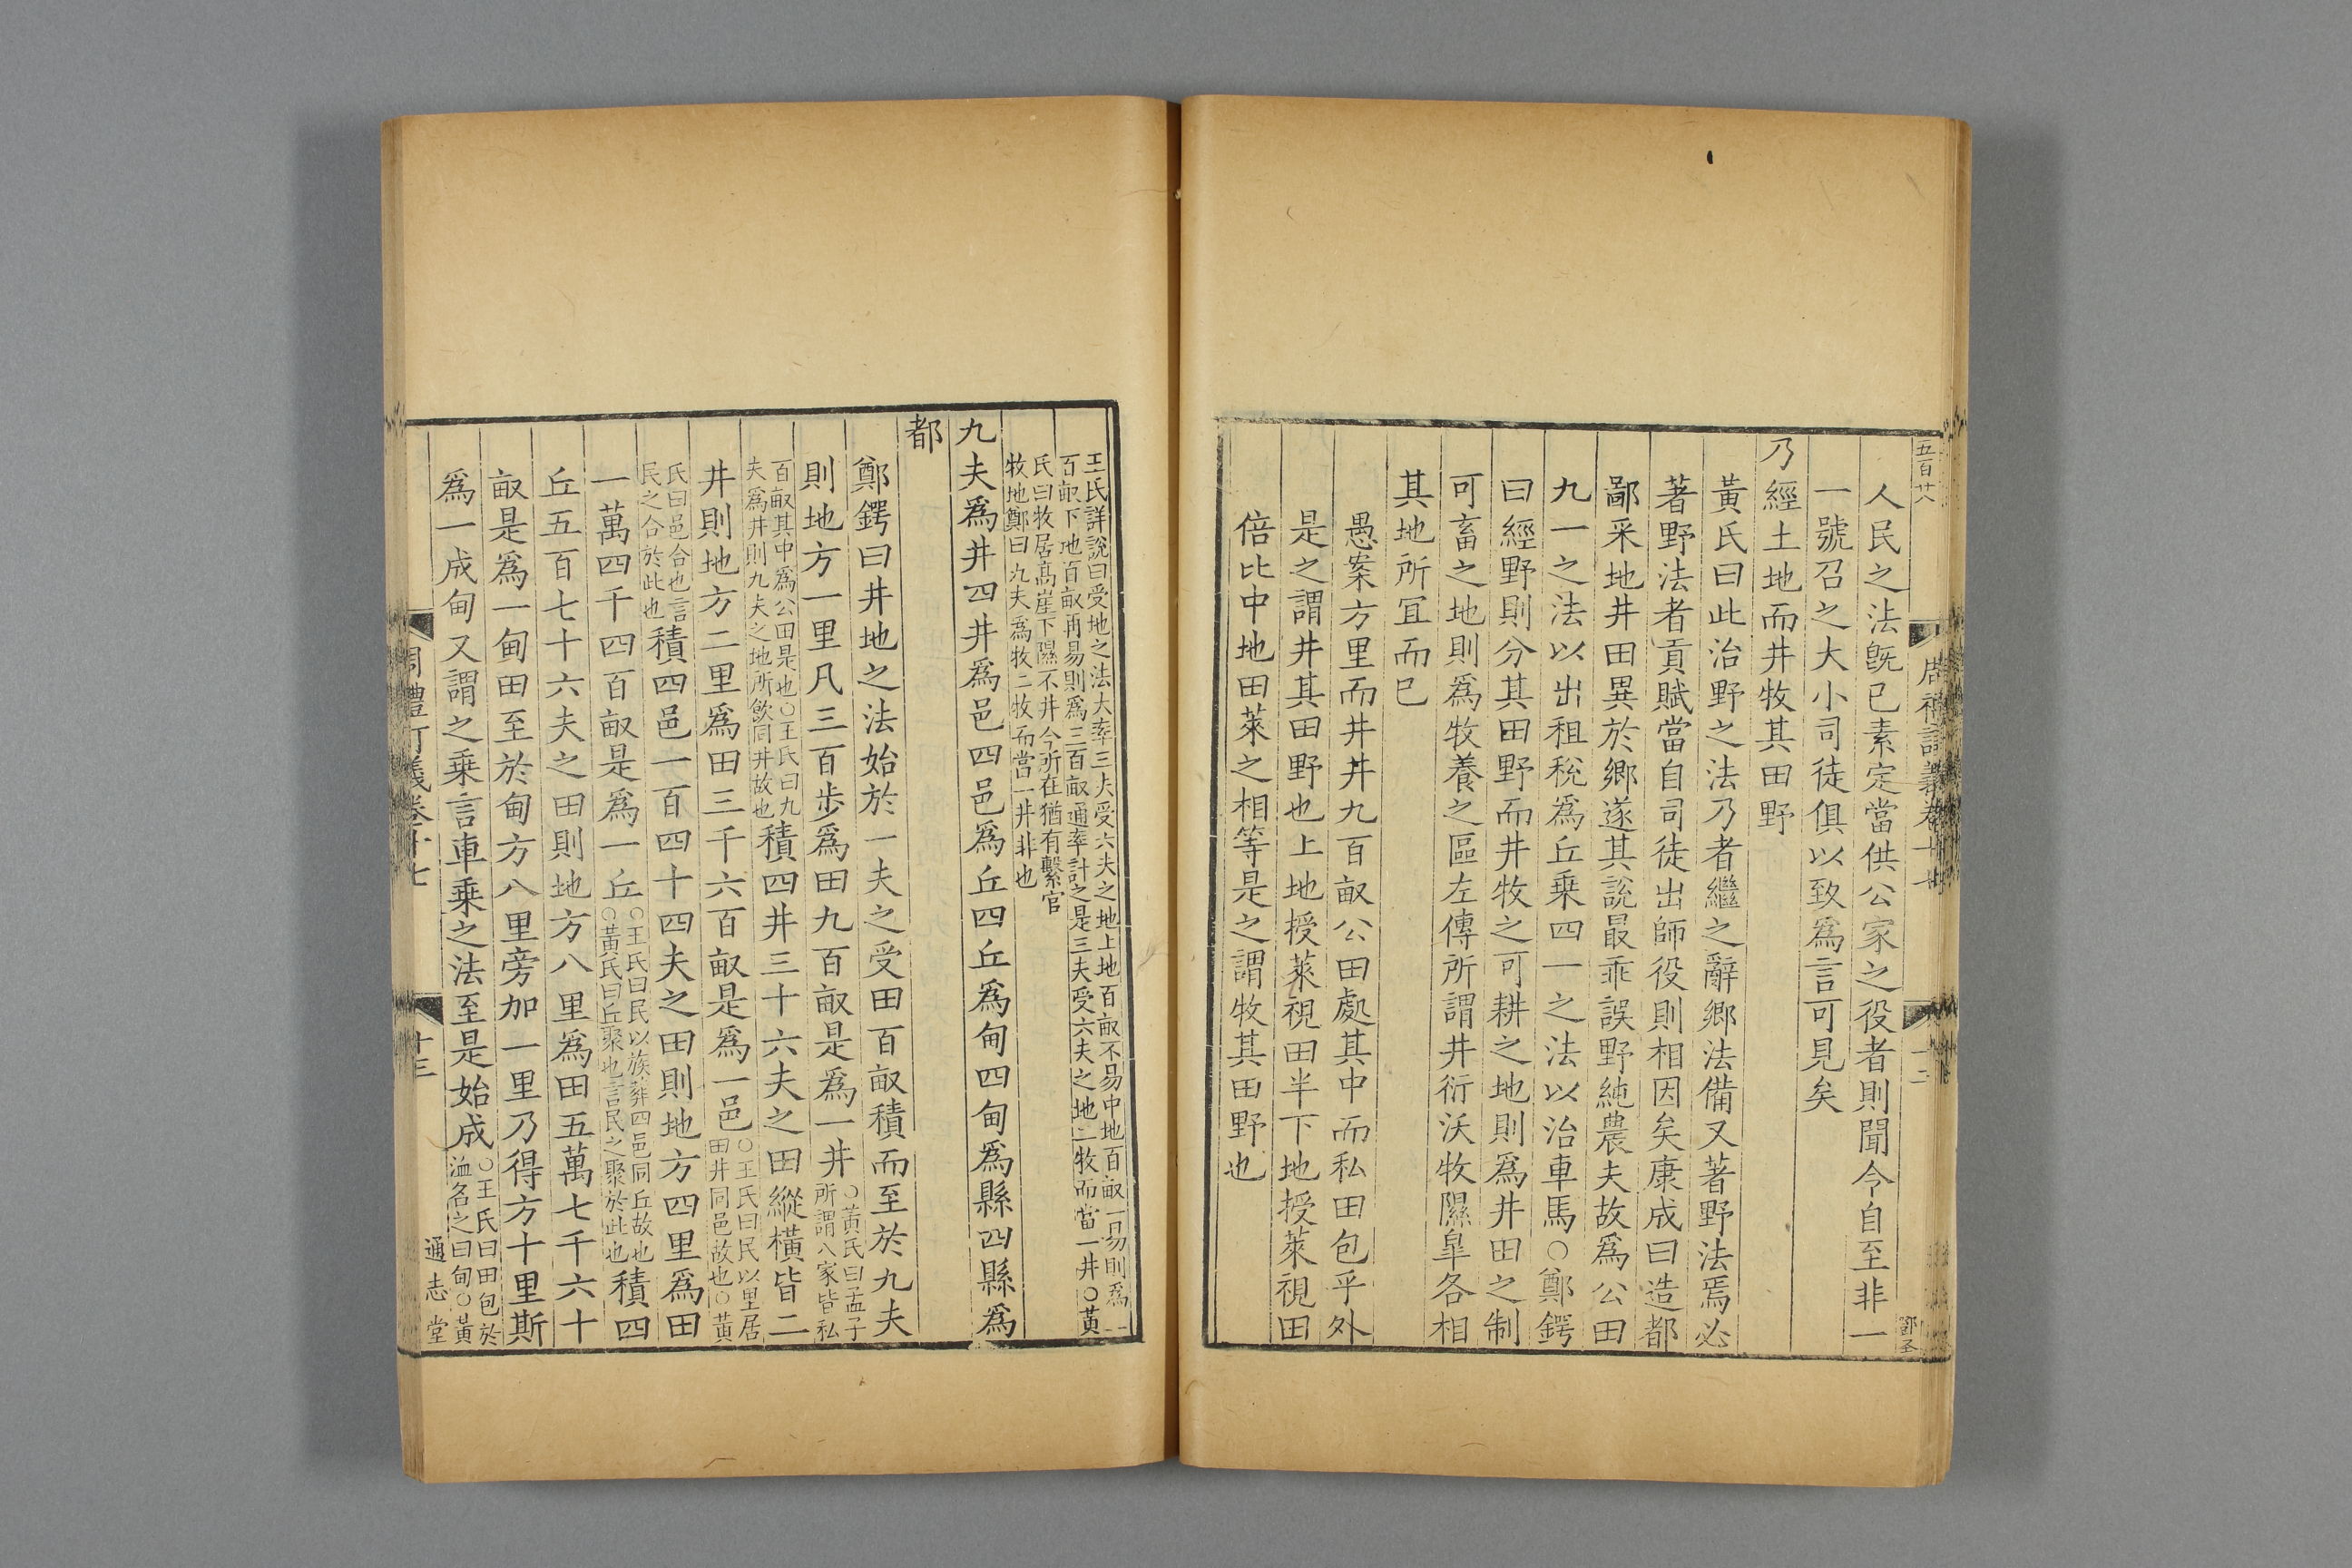 五百廿八
人民之法既已素定當供公家之役者則聞令自至非一
一號召之大小司徒俱以致爲言可見矣
乃經土地而井牧其田野
黃氏曰此治野之法乃者繼之辭鄉法備又著野法焉必
著野法者貢賦當自司徒出師役則相因矣康成曰造都
鄙采地井田異於鄉遂其說最乖誤野純農夫故爲公田
九一之法以出租稅爲丘乗四一之法以治車馬○鄭鍔
曰經野則分其田野而井牧之可耕之地則爲井田之制
可畜之地則爲牧養之區左傳所謂井衍沃牧隰皐各相
其地所宜而已
愚案方里而井井九百畝公田處其中而私田包乎外
是之謂井其田野也上地授萊視田半下地授萊視田
倍比中地田萊之相等是之謂牧其田野也
王氏詳說曰受地之法大率三夫受六夫之地上地百畝不易中地百畝一易則爲一
百畝下地百畝再易則爲三百畝通率計之是三夫受六夫之地二牧而當一井○黃
氏曰牧居高崖下隰不井今所在猶有繫官
牧地鄭曰九夫爲牧二牧而當一井非也
九夫爲井四井爲邑四邑爲丘四丘爲甸四甸爲縣四縣爲
都
鄭鍔曰井地之法始於一夫之受田百畝積而至於九夫
則地方一里凡三百步爲田九百畝是爲一井○黃氏曰孟子
所謂八家皆私
百畝其中爲公田是也○王氏曰九
夫爲井則九夫之地所飲同井故也積四井三十六夫之田縱橫皆二
井則地方二里爲田三千六百畝是爲一邑○王氏曰民以里居
田井同邑故也○黃
氏曰邑合也言
民之合於此也積四邑一百四十四夫之田則地方四里爲田
一萬四千四百畝是爲一丘○王氏曰民以族葬四邑同丘故也
○黃氏曰丘聚也言民之聚於此也積四
丘五百七十六夫之田則地方八里爲田五萬七千六十
畝是爲一甸田至於甸方八里旁加一里乃得方十里斯
爲一成甸又謂之乗言車乗之法至是始成○王氏曰田包於
洫名之曰甸○黃
周禮訂義卷十七
十三
通志堂